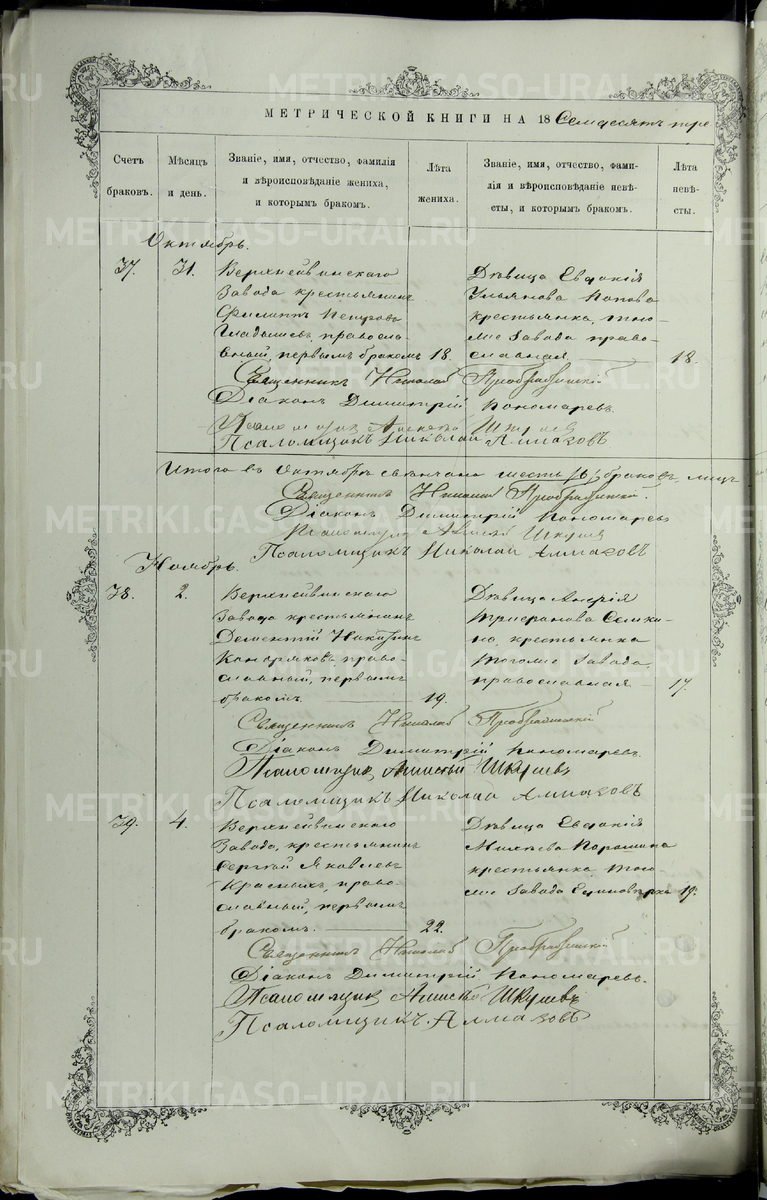 МЕТРИЧЕСКОЙ КНИГИ НА 18 Семдесятъ тре
Счетъ браковъ.
Мѣсяцъ и день.
Званіе, имя, отчество, фамилія
и вѣроисповѣданіе жениха,
и которымъ бракомъ.
Лѣта жениха.
Званіе, имя, отчество, фами-
лія и вѣроисповѣданіе невѣ-
сты, и которымъ бракомъ.
Лѣта невѣ-
сты.
Октябрь.
37. 31. Верхнейвинскаго
Завода крестьянинъ
Филиппъ Петровъ
Гладышевъ, правосла-
вный, первымъ бракомъ 18.
Дѣвица Евдокія
Ульянова Попова
крестьянка, того
же Завода право-
славная. 18.
Священникъ Николай Преображенскій
Діаконъ Димитрій Пономаревъ.
Псаломщикъ Николай Алмазовъ
Итого въ Октябрѣ свѣнчано шесть /6/ браковъ, лицъ
Священникъ Николай Преображенскій.
Діаконъ Димитрій Пономаревъ
Псаломщикъ Николай Алмазовъ
Ноябрь.
38. 2. Верхнейвинскаго
Завода крестьянинъ
Дементій
православный, первымъ
бракомъ. 19.
Дѣвица
крестьянка
тогоже Завода,
православная 17.
Священникъ Николай Преображенскій
Діаконъ Димитрій Пономаревъ.
Псаломщикъ Алексѣй
Псаломщикъ Николай Алмазовъ
39. 4. Верхнейвинскаго
Завода, крестьянинъ
Сергѣй Яковлевъ
Красныхъ, право-
славный, первымъ
бракомъ. 22.
Дѣвица Евдокія
крестьянка то-
же Завода 19.
Священникъ Николай Преображенскій
Діаконъ Димитрій Пономаревъ.
Псаломщикъ Алексѣй
Псаломщикъ. Алмазовъ
METRIKI.GASO-URAL.RU